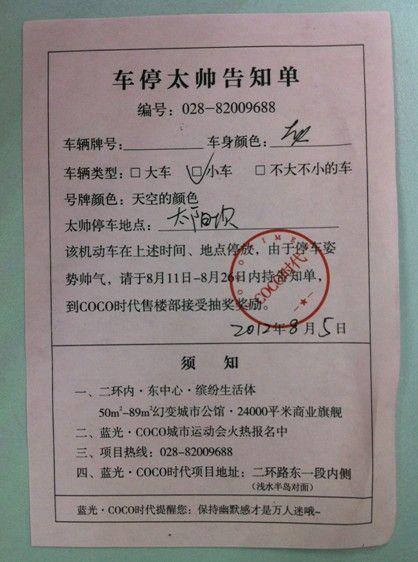 车停太帅告知单
编号：028-82009688
车辆牌号： 车身颜色：
车辆类型：□大车 □小车 □不大不小的车
号牌颜色：天空的颜色
太帅停车地点：太阳坎
该机动车在上述时间、地点停放，由于停车姿
势帅气，请于8月11日-8月26日内持告知单，
到COCO时代售楼部接受抽奖奖励。
COCO时代
2012年8月5日
须 知
一、二环内·东中心·缤纷生活体
50m²-89m²幻变城市公馆·24000平米商业旗舰
二、蓝光·COCO城市运动会火热报名中
三、项目热线：028-82009688
四、蓝光·COCO时代项目地址：二环路东一段内侧
（浅水半岛对面）
蓝光·COCO时代提醒您：保持幽默感才是万人迷哦~